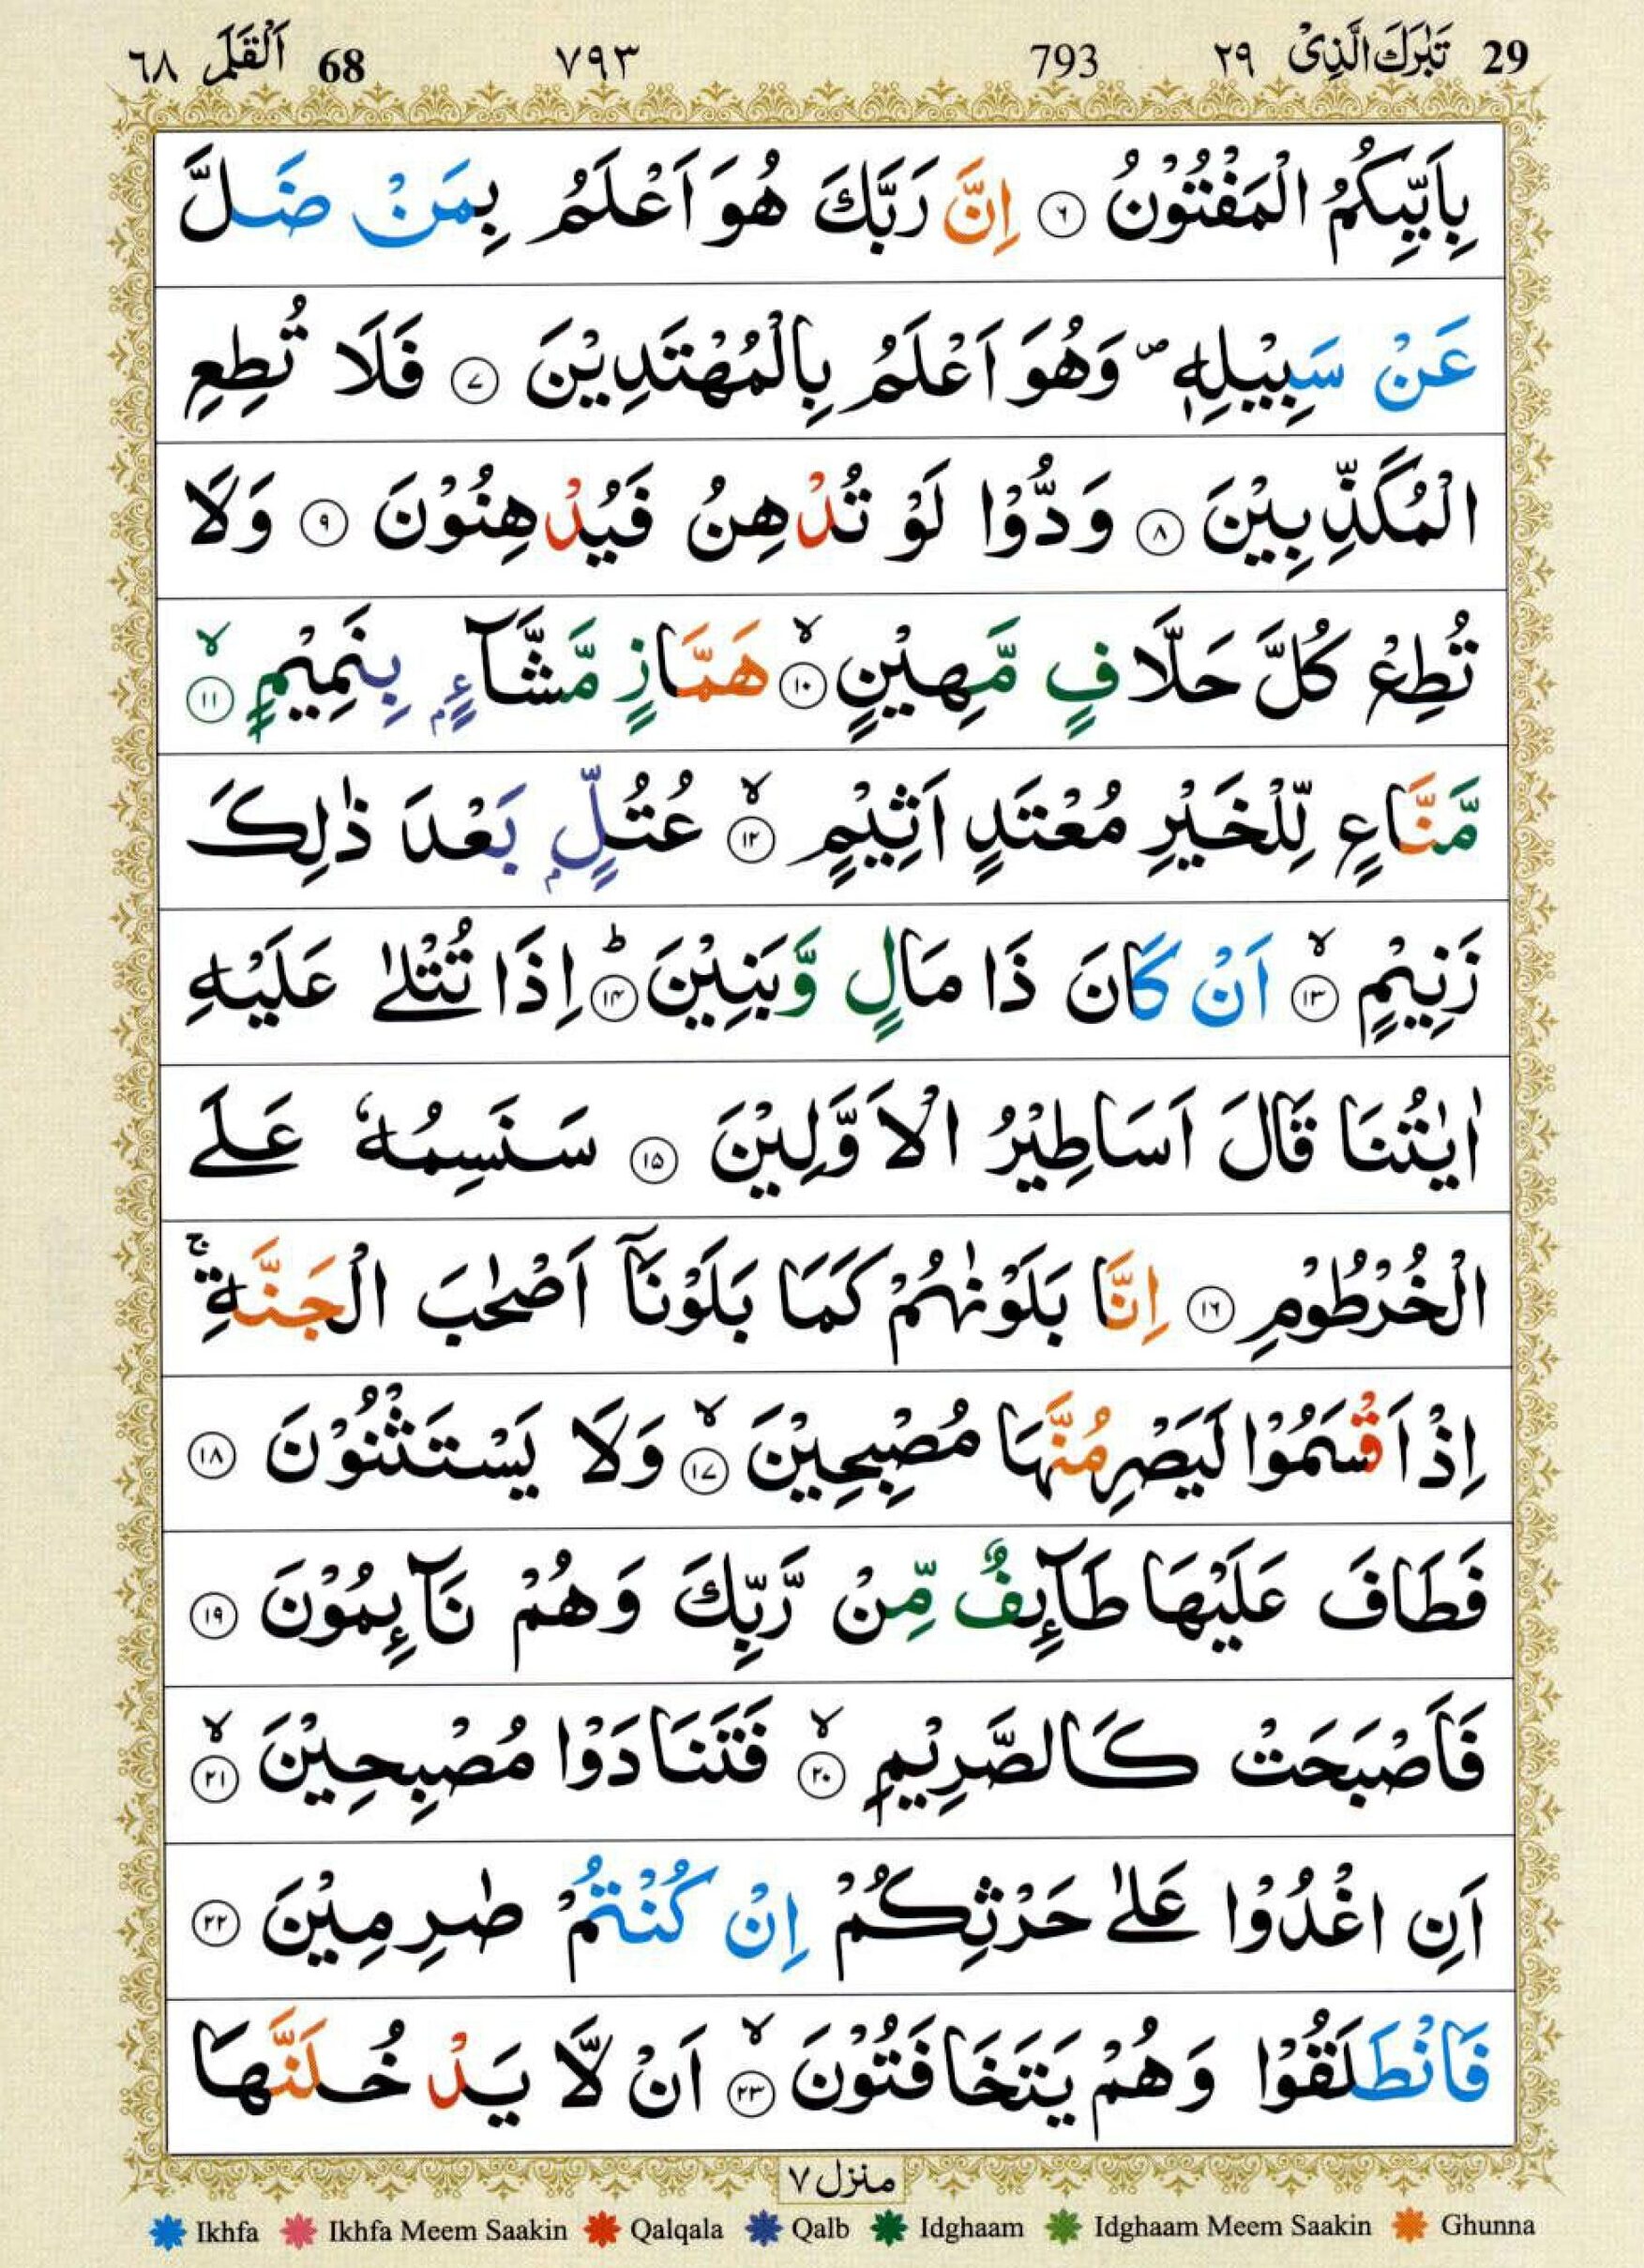 29 تَبٰرَكَ الَّذِىْ ٢٩ 793 ٧٩٣ 68 اَلْقَلَم ٦٨
بِاَىِّيكُمُ الْمَفْتُوْنُ ۝٦ اِنَّ رَبَّكَ هُوَ اَعْلَمُ بِمَنْ ضَلَّ
عَنْ سَبِيْلِهٖ ۪ وَهُوَ اَعْلَمُ بِالْمُهْتَدِيْنَ ۝٧ فَلَا تُطِعِ
الْمُكَذِّبِيْنَ ۝٨ وَدُّوْا لَوْ تُدْهِنُ فَيُدْهِنُوْنَ ۝٩ وَلَا
تُطِعْ كُلَّ حَلَّافٍ مَّهِيْنٍ ۝١٠ۙ هَمَّازٍ مَّشَّآءٍۭ بِنَمِيْمٍ ۝١١ۙ
مَّنَّاعٍ لِّلْخَيْرِ مُعْتَدٍ اَثِيْمٍ ۝١٢ۙ عُتُلٍّۭ بَعْدَ ذٰلِكَ
زَنِيْمٍ ۝١٣ۙ اَنْ كَانَ ذَا مَالٍ وَّبَنِيْنَ ۝١٤ؕ اِذَا تُتْلٰى عَلَيْهِ
اٰيٰتُنَا قَالَ اَسَاطِيْرُ الْاَوَّلِيْنَ ۝١٥ سَنَسِمُهٗ عَلَى
الْخُرْطُوْمِ ۝١٦ اِنَّا بَلَوْنٰهُمْ كَمَا بَلَوْنَاۤ اَصْحٰبَ الْجَنَّةِ ۚ
اِذْ اَقْسَمُوْا لَيَصْرِمُنَّهَا مُصْبِحِيْنَ ۝١٧ۙ وَلَا يَسْتَثْنُوْنَ ۝١٨
فَطَافَ عَلَيْهَا طَآئِفٌ مِّنْ رَّبِّكَ وَهُمْ نَآئِمُوْنَ ۝١٩
فَاَصْبَحَتْ كَالصَّرِيْمِ ۝٢٠ۙ فَتَنَادَوْا مُصْبِحِيْنَ ۝٢١ۙ
اَنِ اغْدُوْا عَلٰى حَرْثِكُمْ اِنْ كُنْتُمْ صٰرِمِيْنَ ۝٢٢
فَانْطَلَقُوْا وَهُمْ يَتَخَافَتُوْنَ ۝٢٣ۙ اَنْ لَّا يَدْخُلَنَّهَا
منزل ٧
Ikhfa Ikhfa Meem Saakin Qalqala Qalb Idghaam Idghaam Meem Saakin Ghunna